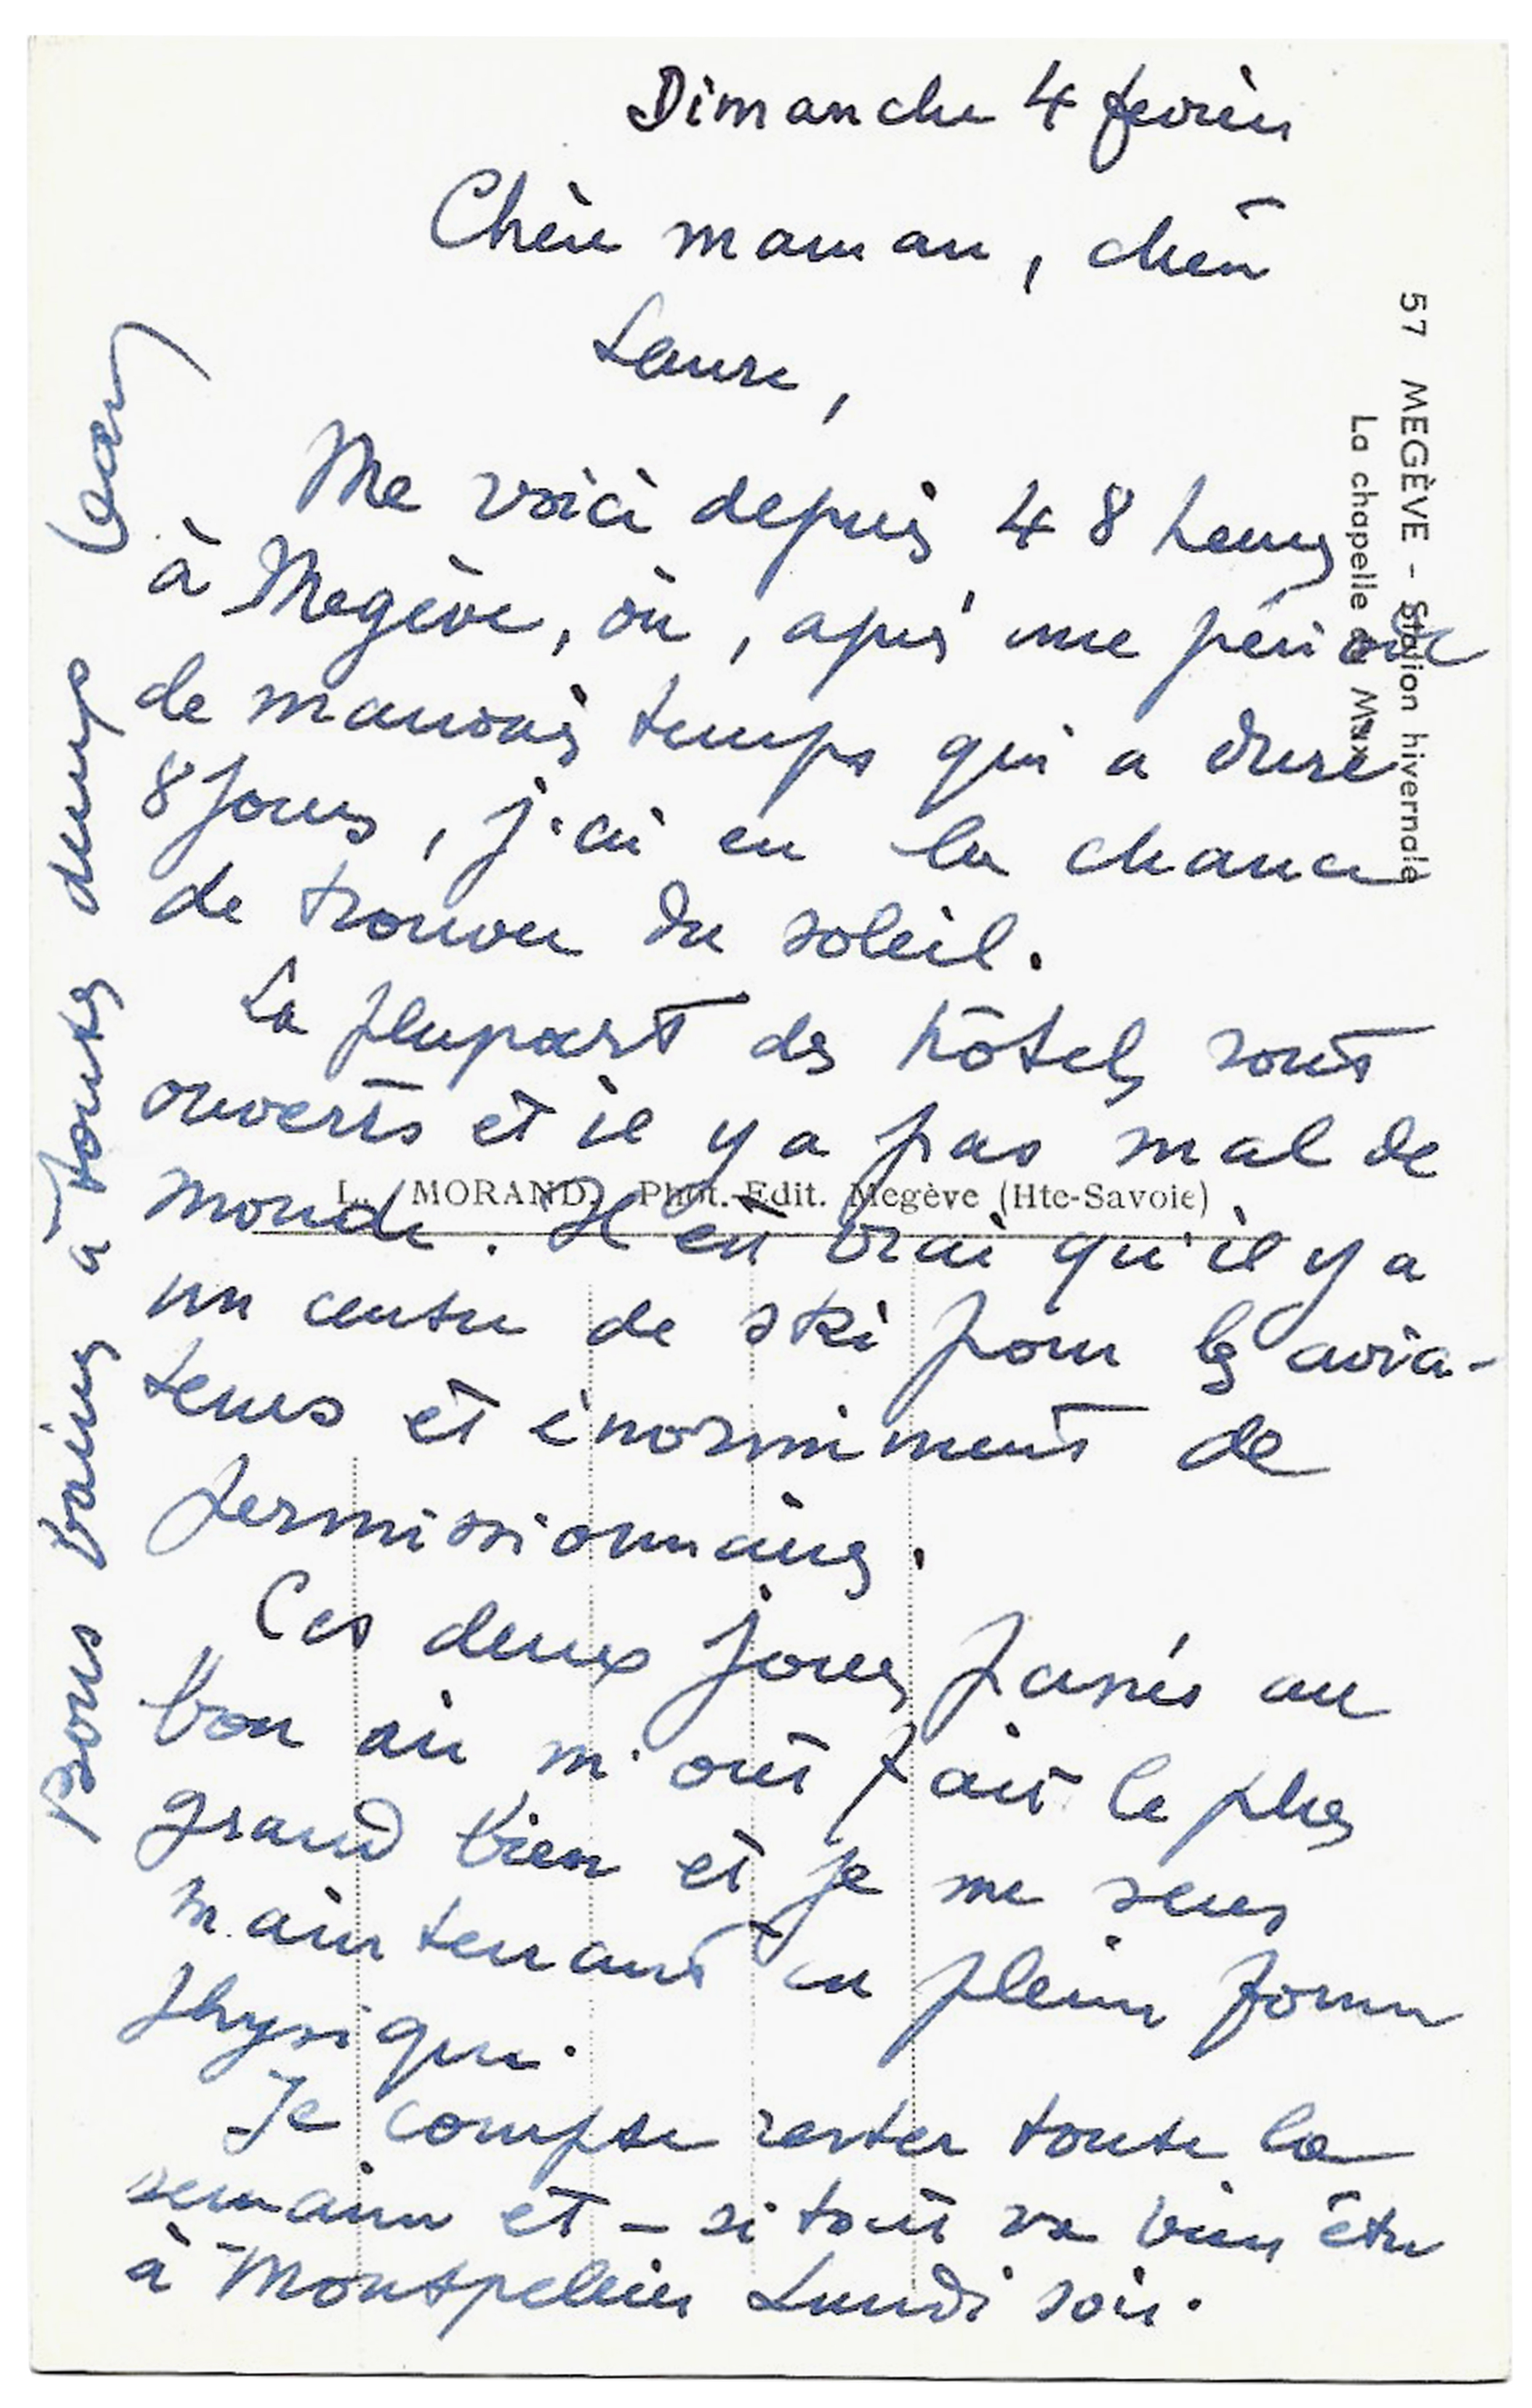 Dimanche 4 février
Chère maman, chère
Laure,
Me voici depuis 48 heures
à Megève, où, après une période
de mauvais temps qui a duré
8 jours, j'ai eu la chance
de trouver du soleil.
La plupart des hôtels sont
ouverts et il y a pas mal de
monde. Il est vrai qu'il y a
un centre de ski pour les avia-
teurs et énormément de
permissionnaires.
Ces deux jours passés au
bon air m'ont fait le plus
grand bien et je me sens
maintenant en pleine forme
physique.
Je compte rester toute la
semaine et – si tout va bien être
à Montpellier Lundi soir.
Bons baisers à toutes deux
Jean
57 MEGÈVE - Station hivernale
La chapelle du Maz
L. MORAND. Phot.-Edit. Megève (Hte-Savoie)